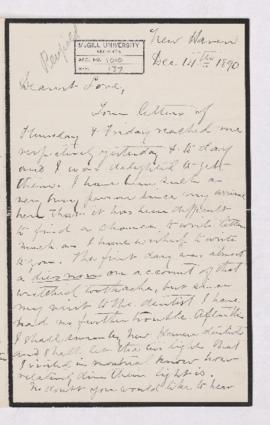 New Haven
Dec 14th 1890
McGILL UNIVERSITY
ARCHIVES
ACC. NO. 1010
REF. 137
Dearest Love,
Your letters of
Thursday & Friday reached me
respectively yesterday & to day
and I was delighted to get
them. I have been such a
very busy person since my arrival
here that it has been difficult
to find a chance to write letters
much as I have wished to write
to you. The first day was almost
a dies non on account of that
wretched toothache, but since
my visit to the dentist I have
had no further trouble. After this
I shall
and I shall let the
I visited in Montreal know how
relatively dim their light is.
No doubt you would like to hear